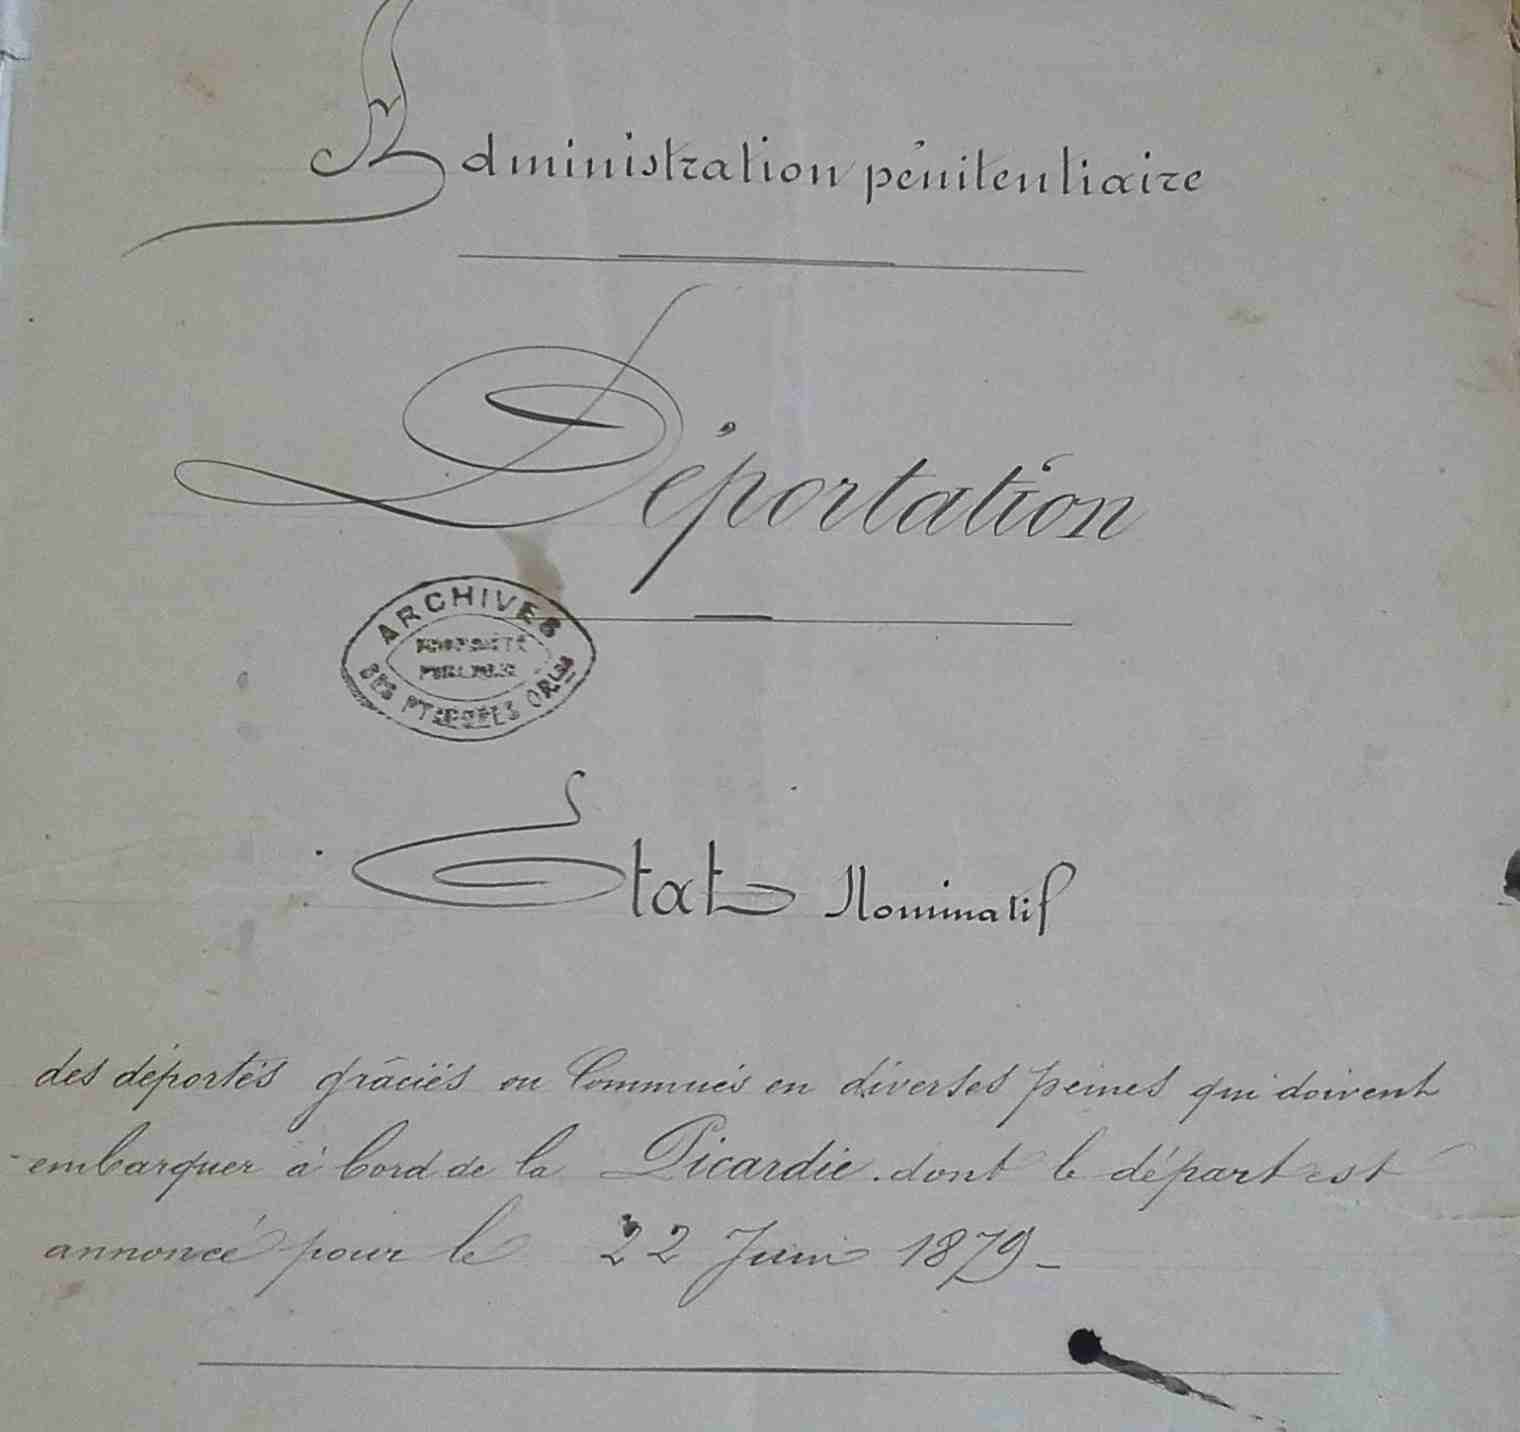 Administration pénitentiaire
Déportation
ARCHIVES
PROPRIÉTÉ
PUBLIQUE
DES
État Nominatif
des déportés grâciés ou Commués en diverses peines qui doivent
embarquer à bord de la Picardie. dont le départ est
annoncé pour le 22 Juin 1879_